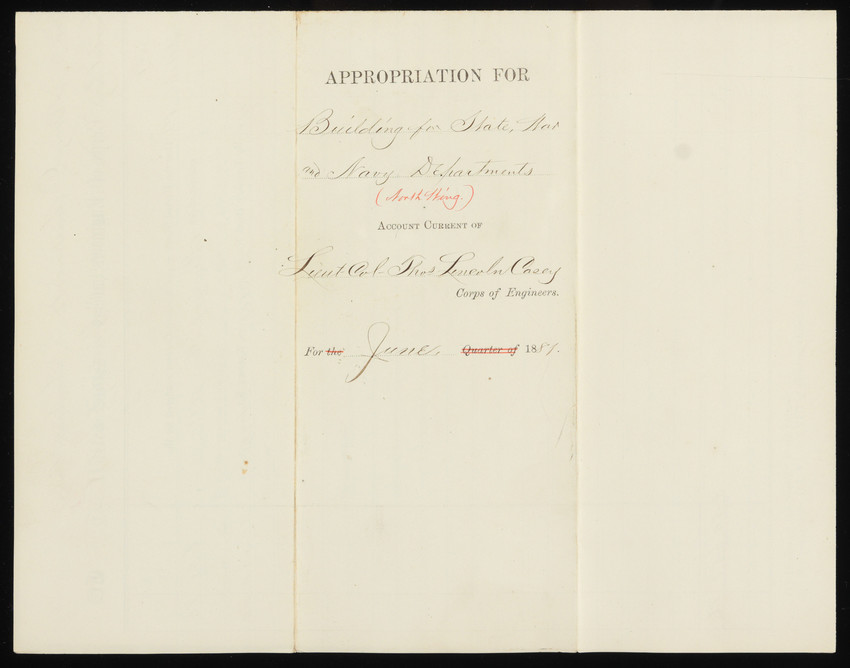 APPROPRIATION FOR
Building for State, War
and Navy Departments
(North Wing.)
ACCOUNT CURRENT OF
Lieut Col Thos Lincoln Casey
Corps of Engineers.
For the June, Quarter of 1881.